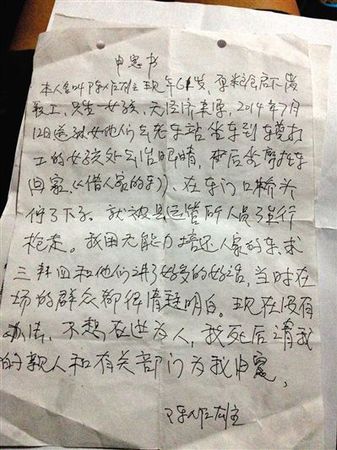 申冤书
本人名叫陈 雄 现年61岁，原粮食局下岗
职工，先生一女孩，无经济来源，2014年7月
12日送 女他们去东站坐车到 打
工的女孩处去治眼睛，而后 摩托车
回家（借人家的车），在东门口桥头
停了下了。就被县运管所人员 行
抢走。我因无能力培还人家的车求
三拜四和他们讲了好多的好话，当时在
场的群众都很清楚明白。现在没有
办法，不想在世为人，我死后请我
的親人和有关部门为我申冤，
陈 雄